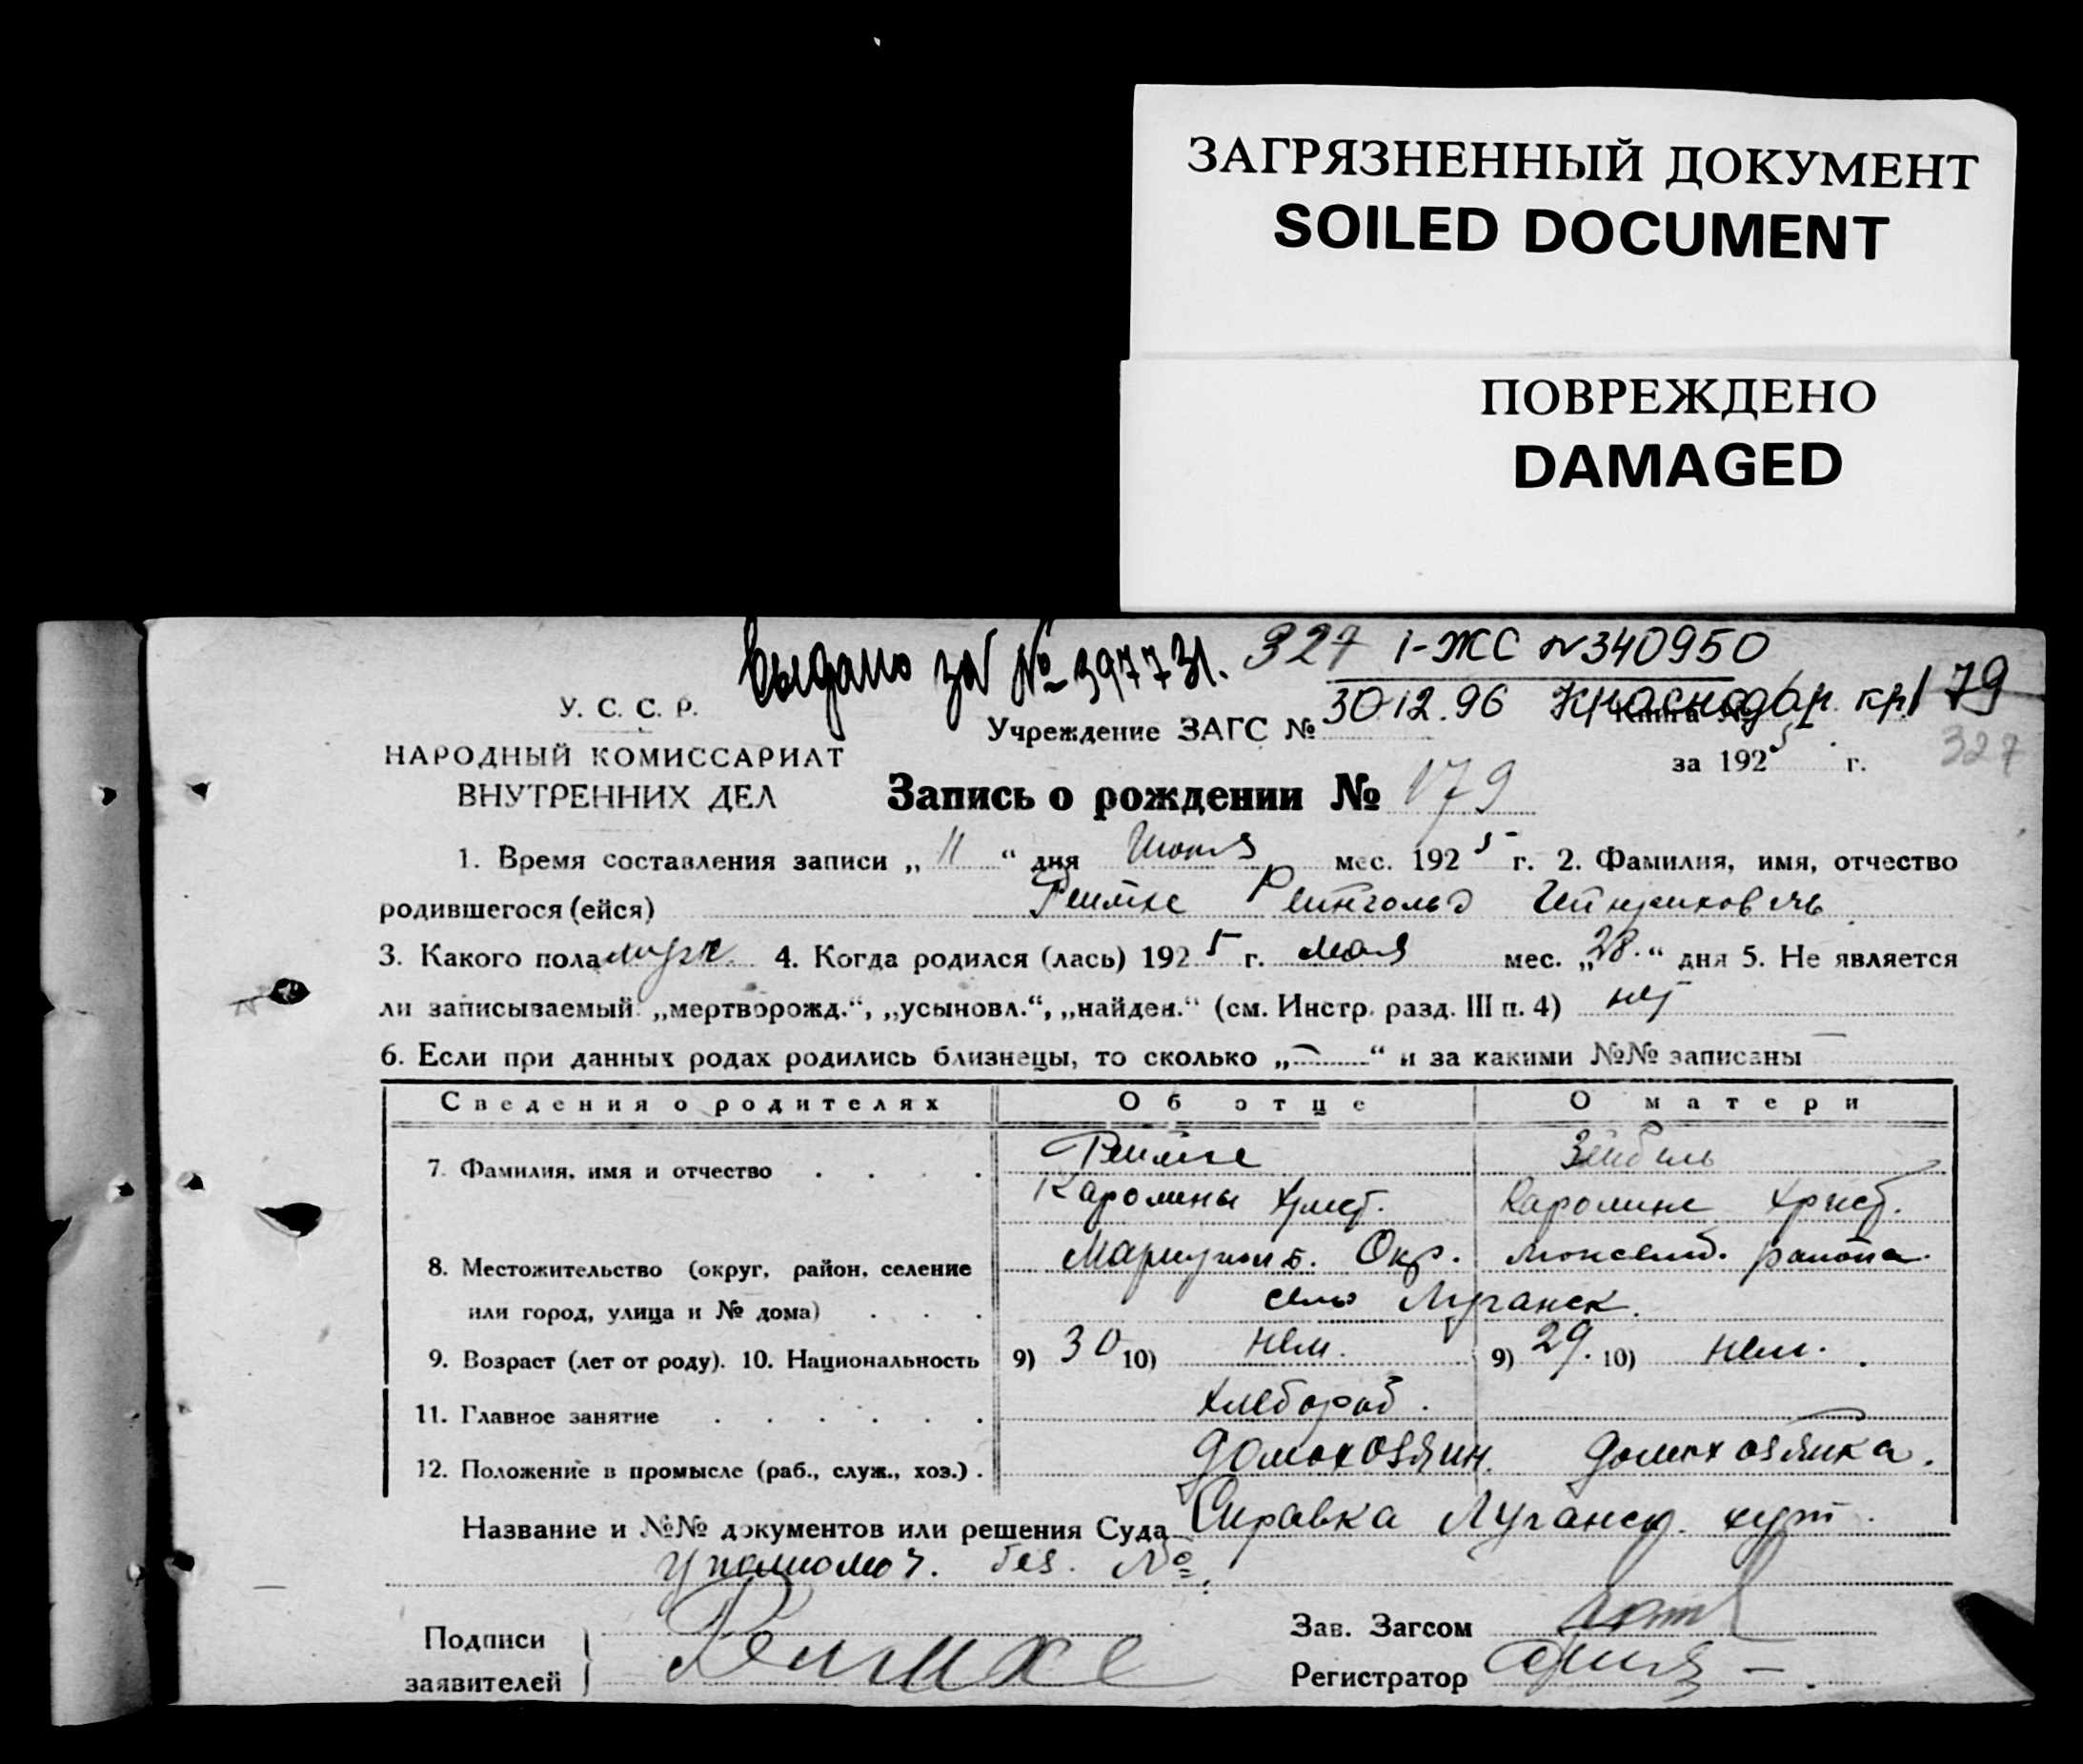 ЗАГРЯЗНЕННЫЙ ДОКУМЕНТ
SOILED DOCUMENT
ПОВРЕЖДЕНО
DAMAGED
выдано за № 397731. 327 I-ЖС №340950
30.12.96 Краснодар. кр. 179
У. С. С. Р.
Учреждение ЗАГС № Книга №
НАРОДНЫЙ КОМИССАРИАТ
ВНУТРЕННИХ ДЕЛ
за 1925 г. 327
Запись о рождении № 179
1. Время составления записи „ 11 “ дня Июня мес. 1925 г. 2. Фамилия, имя, отчество
родившегося (ейся) Рейнгольд
3. Какого пола муж. 4. Когда родился (лась) 1925 г. мая мес. „28.“ дня 5. Не является
ли записываемый „мертворожд.“, „усыновл.“, „найден.“ (см. Инстр. разд. III п. 4) нет
6. Если при данных родах родились близнецы, то сколько „—“ и за какими №№ записаны —
Сведения о родителях Об отце О матери
7. Фамилия, имя и отчество
Христ. Каролина Христ.
8. Местожительство (округ, район, селение Мариупол. Окр. района
или город, улица и № дома) село Луганск.
9. Возраст (лет от роду). 10. Национальность 9) 30 10) нем. 9) 29. 10) нем.
11. Главное занятие хлебороб.
12. Положение в промысле (раб., служ., хоз.). домохозяин. домохозяйка.
Название и №№ документов или решения Суда Справка Луганск. хут.
уполномоч. без. №.
Подписи
заявителей
Зав. Загсом
Регистратор